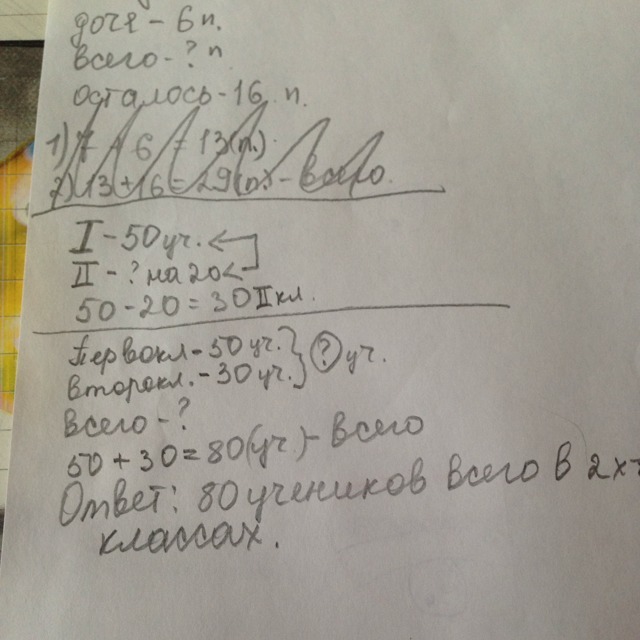 доче - 6 п.
всего - ? п.
осталось - 16 п.
1) 7 + 6 = 13(п.)
2) 13 + 16 = 29(п.) - всего.
I - 50 уч. <
II - ? на 20 <
50 - 20 = 30 II кл.
Первокл - 50 уч. } ? уч.
второкл. - 30 уч. }
всего - ?
50 + 30 = 80(уч) - всего
Ответ: 80 учеников всего в 2х
классах.